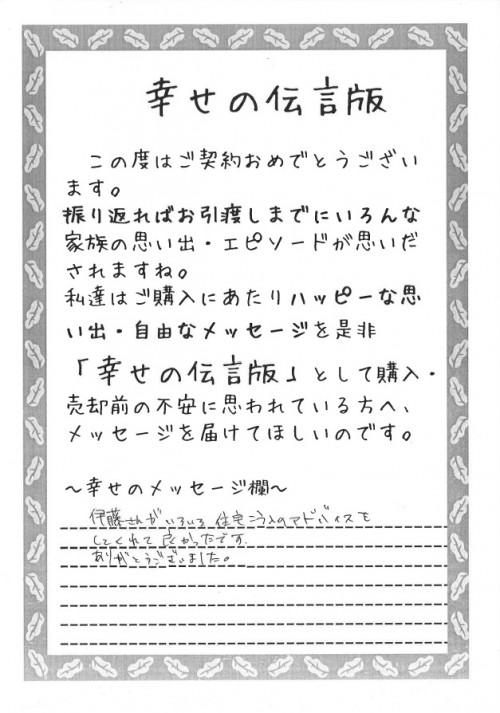 幸せの伝言版
この度はご契約おめでとうござい
ます。
振り返ればお引渡しまでにいろんな
家族の思い出・エピソードが思いだ
されますね。
私達はご購入にあたりハッピーな思
い出・自由なメッセージを是非
「幸せの伝言版」として購入・
売却前の不安に思われている方へ、
メッセージを届けてほしいのです。
～幸せのメッセージ欄～
伊藤さんがいろいろ住宅こう入のアドバイスを
してくれて良かったです。
ありがとうございました。